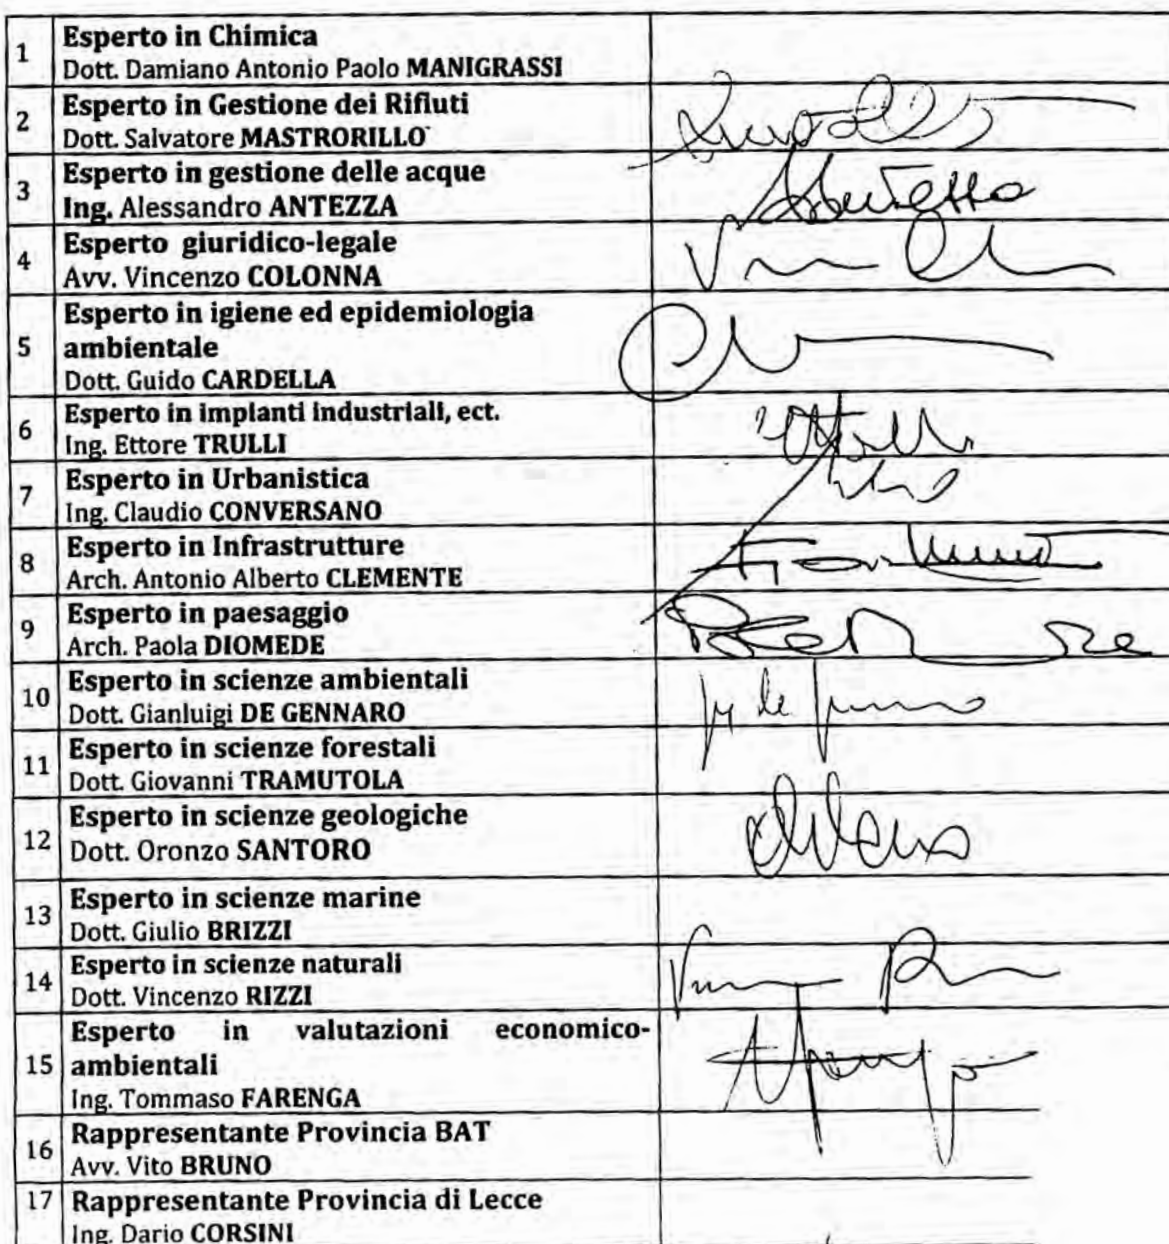 1 Esperto in Chimica
Dott. Damiano Antonio Paolo MANIGRASSI
2 Esperto in Gestione dei Rifiuti
Dott. Salvatore MASTRORILLO
3 Esperto in gestione delle acque
Ing. Alessandro ANTEZZA
4 Esperto giuridico-legale
Avv. Vincenzo COLONNA
5 Esperto in igiene ed epidemiologia
ambientale
Dott. Guido CARDELLA
6 Esperto in impianti industriali, ect.
Ing. Ettore TRULLI
7 Esperto in Urbanistica
Ing. Claudio CONVERSANO
8 Esperto in Infrastrutture
Arch. Antonio Alberto CLEMENTE
9 Esperto in paesaggio
Arch. Paola DIOMEDE
10 Esperto in scienze ambientali
Dott. Gianluigi DE GENNARO
11 Esperto in scienze forestali
Dott. Giovanni TRAMUTOLA
12 Esperto in scienze geologiche
Dott. Oronzo SANTORO
13 Esperto in scienze marine
Dott. Giulio BRIZZI
14 Esperto in scienze naturali
Dott. Vincenzo RIZZI
15 Esperto in valutazioni economico-
ambientali
Ing. Tommaso FARENGA
16 Rappresentante Provincia BAT
Avv. Vito BRUNO
17 Rappresentante Provincia di Lecce
Ing. Dario CORSINI